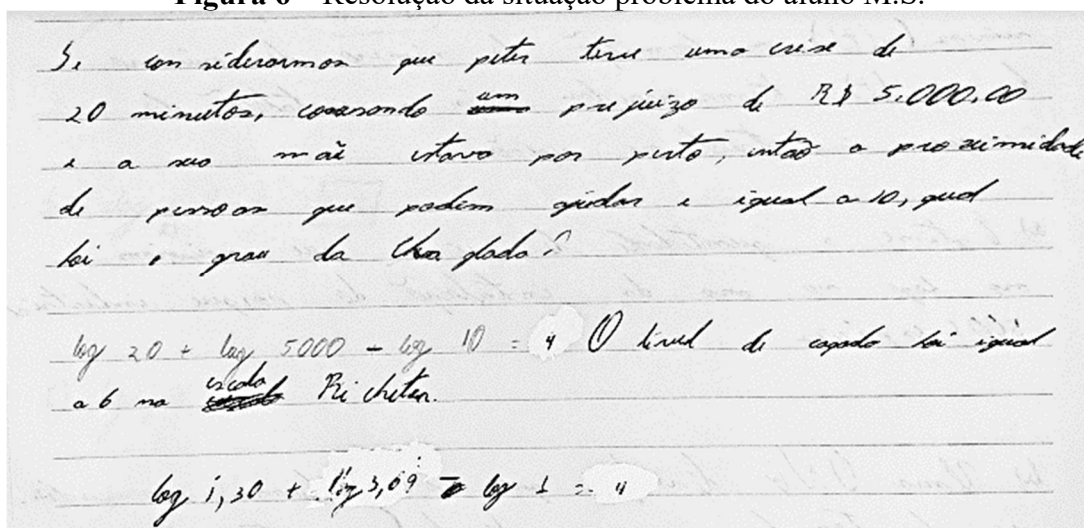 Figura 6 – Resolução da situação problema do aluno M.S.
Se considerarmos que peter teve uma crise de
20 minutos, causando um prejuizo de R$ 5.000,00
e a sua mãe estava por perto, então a proximidade
de pessoas que podem ajudar e igual a 10, qual
foi o grau da
log 20 + log 5000 - log 10 = 4 O level de cagada foi igual
a 6 na escala Richeter.
log 1,30 + log 3,69 - log 1 = 4